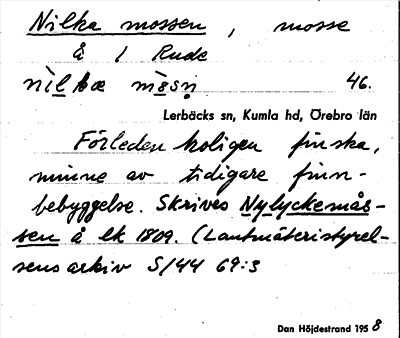 Nilka mossen, mosse
å 1 Rude
nìlkæ mòsn̥ 46.
Lerbäcks sn, Kumla hd, Örebro län
Förleden troligen finska,
minne av tidigare finn-
bebyggelse. Skrives Nylyckemås-
sen å ek 1809. (Lantmäteristyrel-
sens arkiv S/44 69:3
Dan Höjdestrand 1958